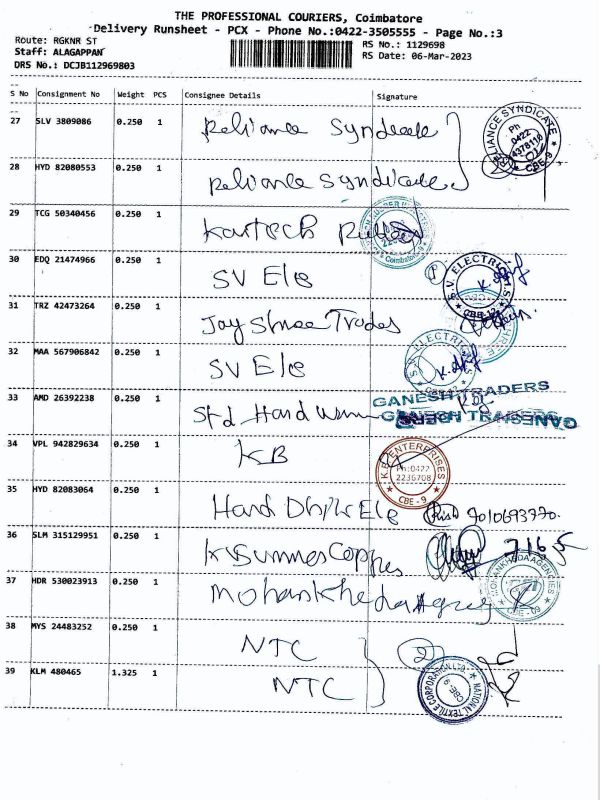 THE PROFESSIONAL COURIERS, Coimbatore
Delivery Runsheet - PCX - Phone No.:0422-3505555 - Page No.:3
Route: RGKNR ST
RS No.: 1129698
Staff: ALAGAPPAN
RS Date: 06-Mar-2023
DRS No.: DCJB112969803
S No Consignment No Weight PCS Consignee Details Signature
27 SLV 3809086 0.250 1 Reliance Syndicate
RELIANCE SYNDICATE Ph 0422 4376116 CBE-9
28 HYD 82080553 0.250 1 Reliance Syndicate
29 TCG 50340456 0.250 1 Kartech
Coimbatore-9
30 EDQ 21474966 0.250 1 SV Ele
S.V. ELECTRICALS CBE-12
31 TRZ 42473264 0.250 1 Jay Shree Trades
32 MAA 567906842 0.250 1 SV Ele
33 AMD 26392238 0.250 1 Std Hard
GANESH TRADERS
34 VPL 942829634 0.250 1 KB
K.B. ENTERPRISES Ph:0422 2236708 CBE - 9
35 HYD 82083064 0.250 1 Ele 9010693770
36 SLM 315129951 0.250 1
37 HDR 530023913 0.250 1 Mohankheda
MOHANKHEDA AGENCIES CBE-09
38 MYS 24483252 0.250 1 NTC 2
39 KLM 480465 1.325 1 NTC
NATIONAL TEXTILE CORPORATION LTD CBE-9